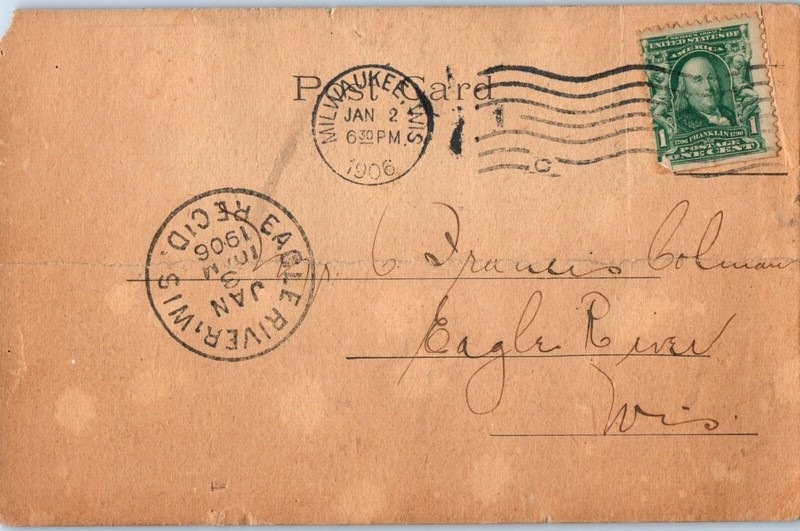 Post Card
MILWAUKEE, WIS
JAN 2
6 30 PM
1906
1
C
UNITED STATES OF
AMERICA
1 FRANKLIN 1
POSTAGE
ONE CENT
EAGLE RIVER, WIS.
REC'D.
JAN
3
M
1906
C Francis Colman
Eagle River
Wis.